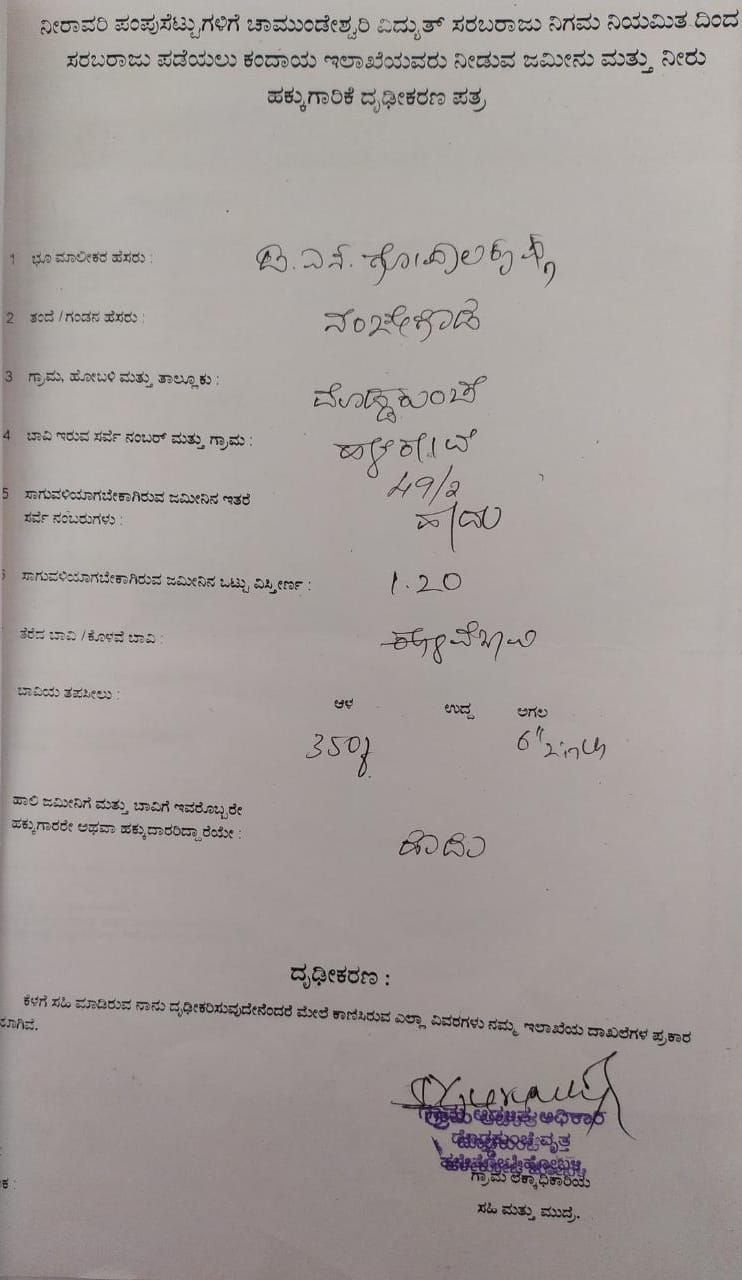 ನೀರಾವರಿ ಪಂಪುಸೆಟ್ಟುಗಳಿಗೆ ಚಾಮುಂಡೇಶ್ವರಿ ವಿದ್ಯುತ್ ಸರಬರಾಜು ನಿಗಮ ನಿಯಮಿತ ದಿಂದ
ಸರಬರಾಜು ಪಡೆಯಲು ಕಂದಾಯ ಇಲಾಖೆಯವರು ನೀಡುವ ಜಮೀನು ಮತ್ತು ನೀರು
ಹಕ್ಕುಗಾರಿಕೆ ದೃಢೀಕರಣ ಪತ್ರ
1 ಭೂ ಮಾಲೀಕರ ಹೆಸರು :
2 ತಂದೆ / ಗಂಡನ ಹೆಸರು : ನಂಜೇಗೌಡ
3 ಗ್ರಾಮ, ಹೋಬಳಿ ಮತ್ತು ತಾಲ್ಲೂಕು :
4 ಬಾವಿ ಇರುವ ಸರ್ವೆ ನಂಬರ್ ಮತ್ತು ಗ್ರಾಮ :
49/2
5 ಸಾಗುವಳಿಯಾಗಬೇಕಾಗಿರುವ ಜಮೀನಿನ ಇತರೆ
ಸರ್ವೆ ನಂಬರುಗಳು :
ಸಾಗುವಳಿಯಾಗಬೇಕಾಗಿರುವ ಜಮೀನಿನ ಒಟ್ಟು ವಿಸ್ತೀರ್ಣ : 1.20
ತೆರೆದ ಬಾವಿ / ಕೊಳವೆ ಬಾವಿ : ಕೊಳವೆಬಾವಿ
ಬಾವಿಯ ತಪಸೀಲು :
ಆಳ ಉದ್ದ ಅಗಲ
350f 6"
ಹಾಲಿ ಜಮೀನಿಗೆ ಮತ್ತು ಬಾವಿಗೆ ಇವರೊಬ್ಬರೇ
ಹಕ್ಕುಗಾರರೇ ಅಥವಾ ಹಕ್ಕುದಾರರಿದ್ದಾರೆಯೇ : ಹೌದು
ದೃಢೀಕರಣ :
ಕೆಳಗೆ ಸಹಿ ಮಾಡಿರುವ ನಾನು ದೃಢೀಕರಿಸುವುದೇನೆಂದರೆ ಮೇಲೆ ಕಾಣಿಸಿರುವ ಎಲ್ಲಾ ವಿವರಗಳು ನಮ್ಮ ಇಲಾಖೆಯ ದಾಖಲೆಗಳ ಪ್ರಕಾರ
ಗ್ರಾಮ ಆಡಳಿತ ಅಧಿಕಾರಿ
ದೊಡ್ಡಕುಂಚೆ ವೃತ್ತ
ಗ್ರಾಮ ಲೆಕ್ಕಾಧಿಕಾರಿಯ
ಸಹಿ ಮತ್ತು ಮುದ್ರೆ.